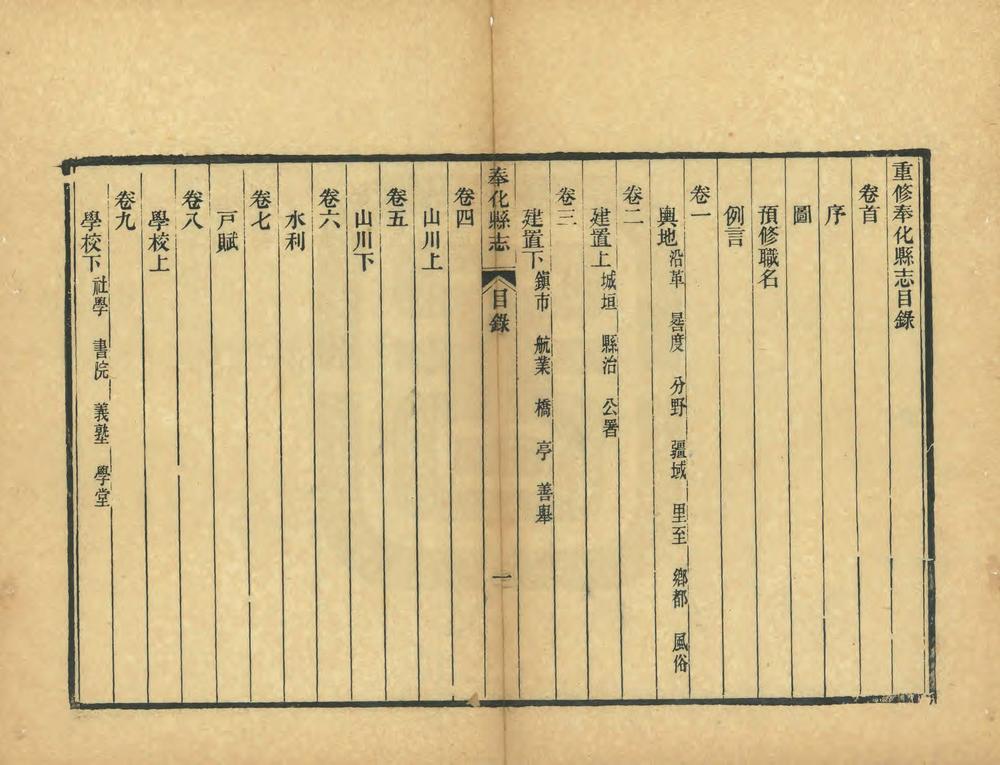 重修奉化縣志目錄
卷首
序
圖
預修職名
例言
卷一
輿地 沿革 晷度 分野 疆域 里至 鄉都 風俗
卷二
建置上 城垣 縣治 公署
卷三
建置下 鎭市 航業 橋 亭 善舉
奉化縣志 目錄 一
卷四
山川上
卷五
山川下
卷六
水利
卷七
戸賦
卷八
學校上
卷九
學校下 社學 書院 義塾 學堂